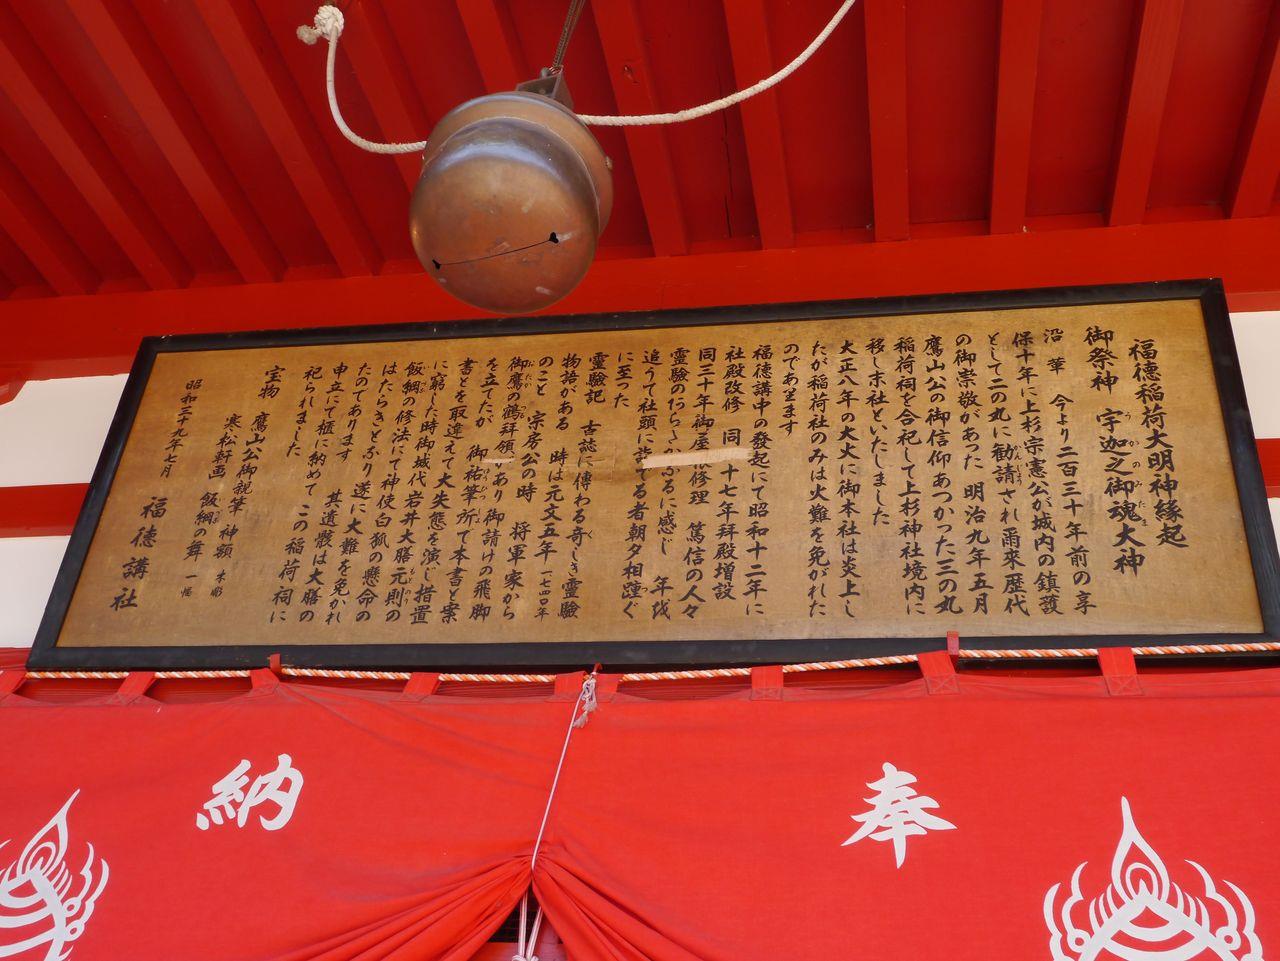 福徳稲荷大明神縁起
御祭神 宇迦之御魂大神
う か の み たま
沿革 今より二百三十年前の享
保十年に上杉宗憲公が城内の鎮護
として二の丸に勧請され爾来歴代
の御崇敬があった 明治九年五月
鷹山公の御信仰あつかった三の丸
稲荷祠を合祀して上杉神社境内に
移し末社といたしました
大正八年の大火に御本社は炎上し
たが稲荷社のみは火難を免がれた
のであります
福徳講中の發起にて昭和十二年に
社殿改修 同 十七年拜殿増設
同三十年御屋 修理 篤信の人々
靈験の に感じ 年或
追うて社頭に詣でる者朝夕相踵ぐ
に至った
靈驗記 古誌に傳わる奇しき靈驗
物語がある 時は元文五年 一七四〇年
のこと 宗房公の時 将軍家から
御鷹の鶴拜領 あり御請けの飛脚
を立てたが 御祐筆所で本書と案
書とを取違えて大失態を演じ措置
に窮した時御城代岩井大膳元則の
飯綱の修法にて神使白狐の懸命の
はたらきとなり遂に大難を免かれ
たのであります
申立にて櫃に納めて 其遺骸は大膳の
祀られました この稲荷祠に
宝物 鷹山公御親筆 神額 木彫
寒松軒画 飯綱の舞 一幅
昭和三十九年七月 福徳講社
奉
納